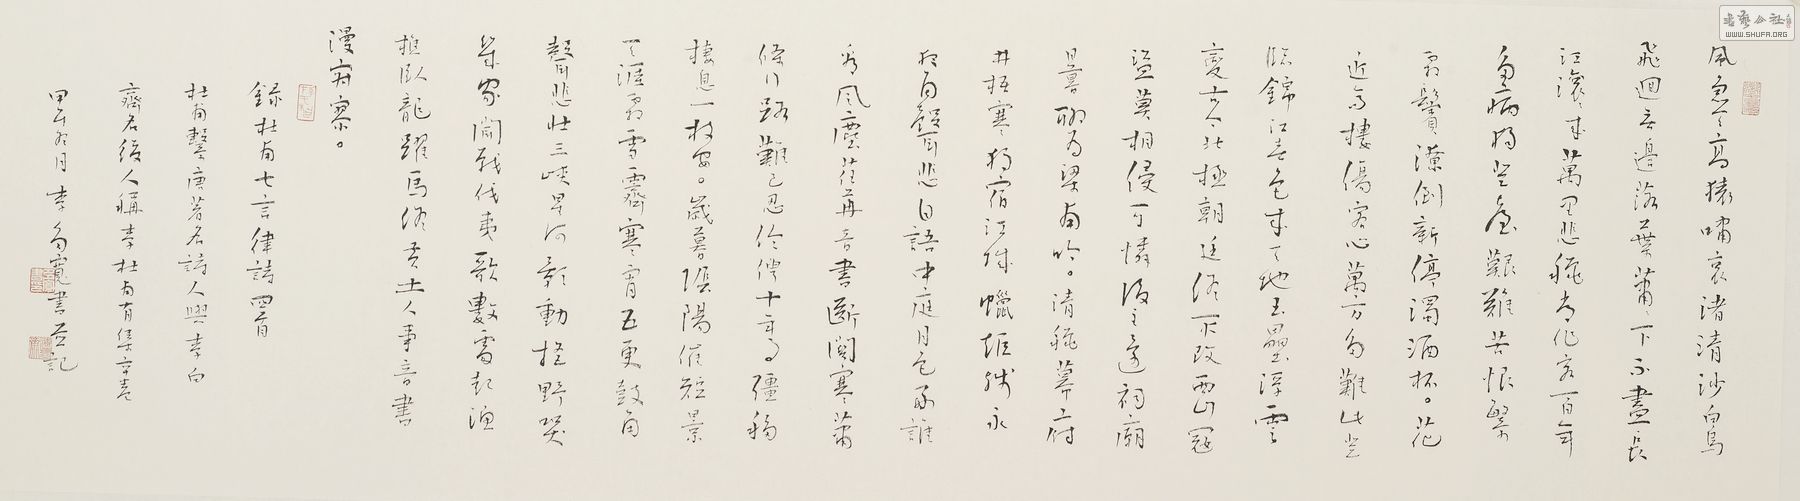 風急天高猿嘯哀渚清沙白鳥
飛迴無邊落葉蕭〻下不盡長
江滾〻來萬里悲秋常作客百年
多病獨登臺艱難苦恨繁
霜鬢潦倒新停濁酒杯。花
近高樓傷客心萬方多難此登
臨錦江春色來天地玉壘浮雲
變古今北極朝廷終不改西山冦
盜莫相侵可憐後主還祠廟
日暮聊為梁甫吟。清秋幕府
井梧寒獨宿江城蠟炬殘永
夜角聲悲自語中庭月色好誰
看風塵荏苒音書斷關塞蕭
條行路難已忍伶俜十年事彊移
棲息一枝安。歲暮陰陽催短景
天涯霜雪霽寒宵五更鼓角
聲悲壯三峽星河影動搖野哭
幾家聞戰伐夷歌數處起漁
樵臥龍躍馬終黃土人事音書
漫寂寥。
錄杜甫七言律詩四首
杜甫
唐著名詩人與李白
齊名後人稱李杜有集
甲午
月李多寬書並記
书艺公社
WWW.SHUFA.ORG